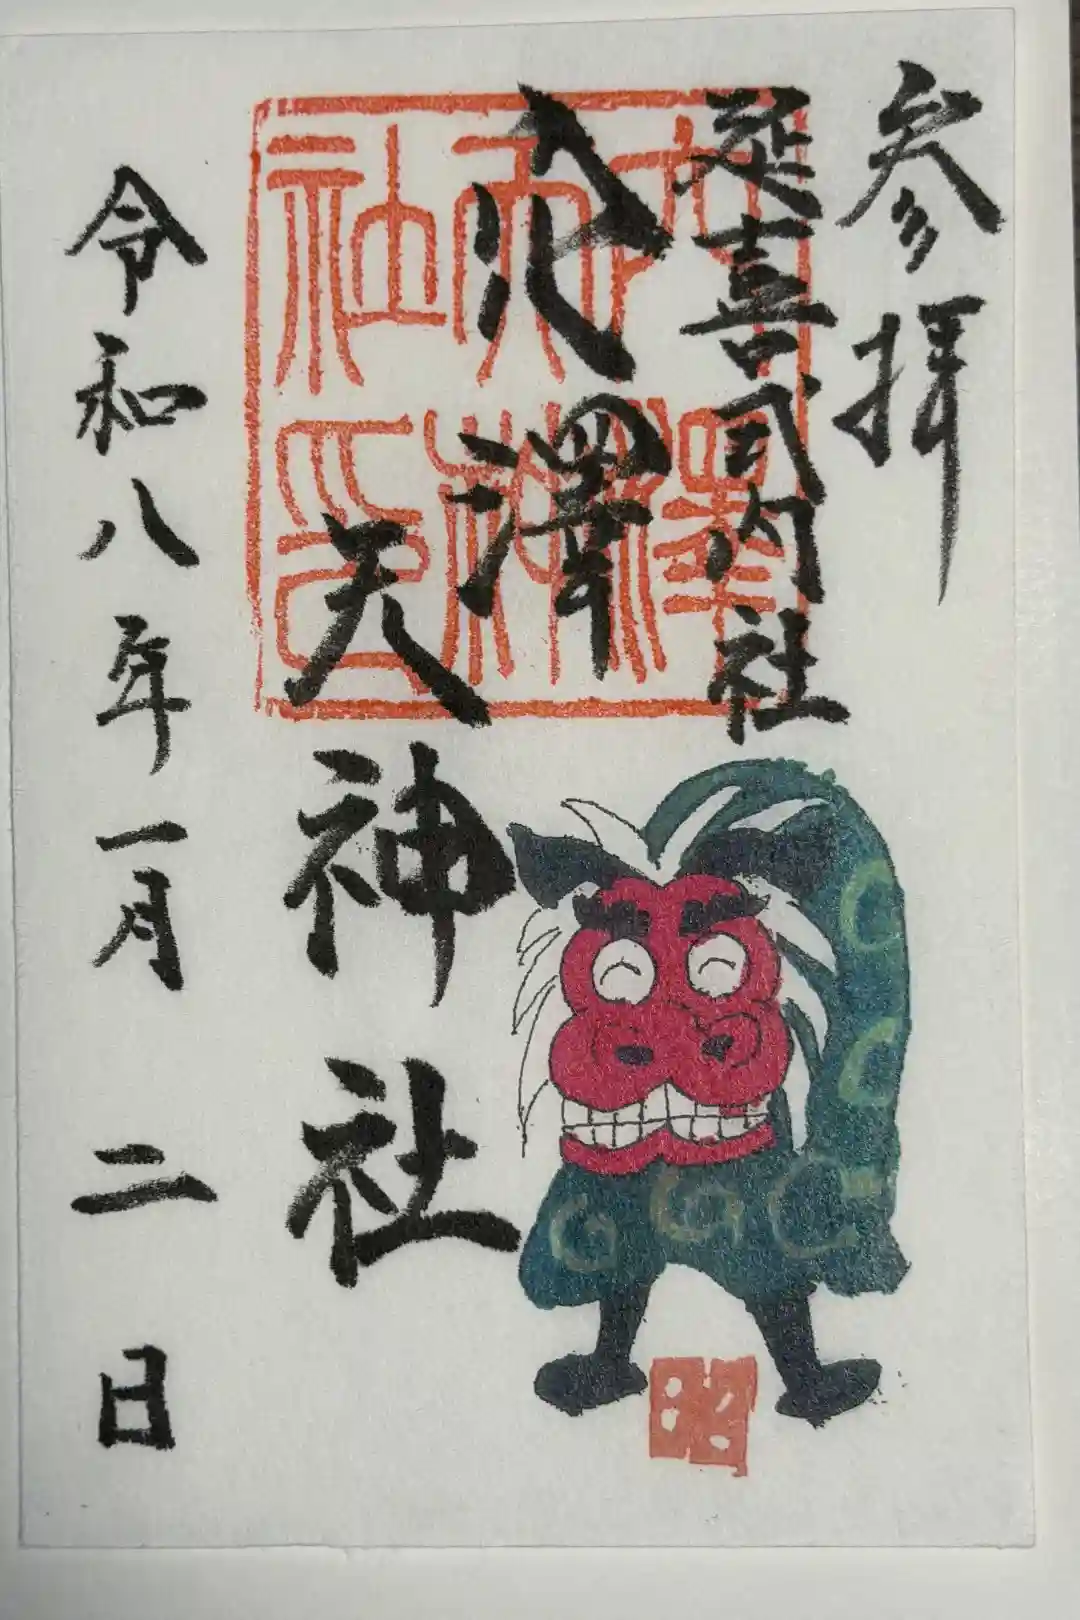 参拝
延喜式内社
穴澤
天神社
令和八年一月二日
穴澤
天神
社印